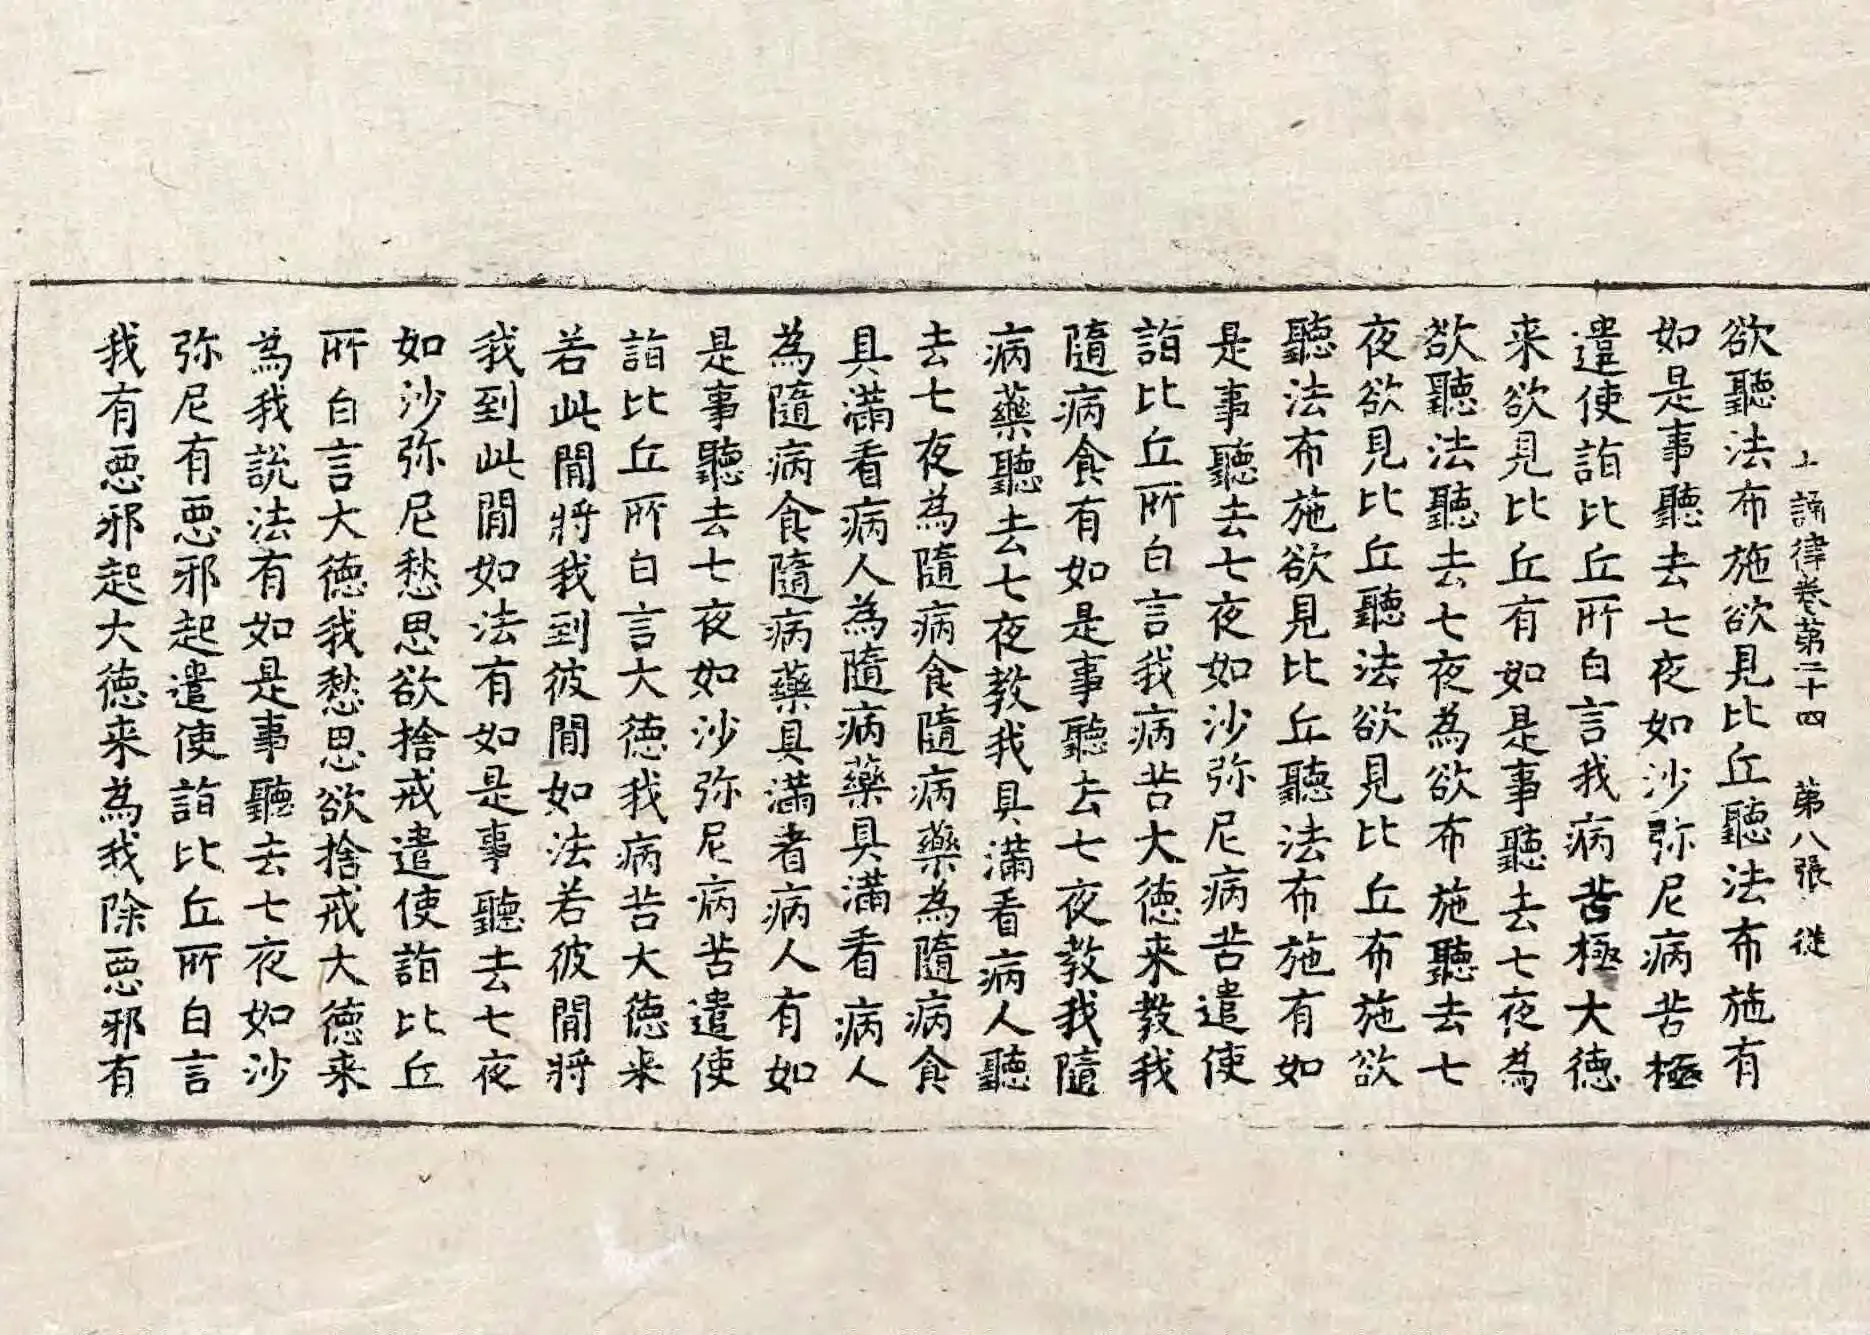 十誦律卷第二十四 第八張 従
欲聽法布施欲見比丘聽法布施有
如是事聽去七夜如沙弥尼病苦極
遣使詣比丘所白言我病苦極大徳
来欲見比丘有如是事聽去七夜為
欲聽法聽去七夜為欲布施聽去七
夜欲見比丘聽法欲見比丘布施欲
聽法布施欲見比丘聽法布施有如
是事聽去七夜如沙弥尼病苦遣使
詣比丘所白言我病苦大徳来教我
隨病食有如是事聽去七夜教我隨
病藥聽去七夜教我具滿看病人聽
去七夜為隨病食隨病藥為隨病食
具滿看病人為隨病藥具滿看病人
為隨病食隨病藥具滿者病人有如
是事聽去七夜如沙弥尼病苦遣使
詣比丘所白言大徳我病苦大徳来
若此閒將我到彼閒如法若彼閒將
我到此閒如法有如是事聽去七夜
如沙弥尼愁思欲捨戒遣使詣比丘
所白言大徳我愁思欲捨戒大徳来
為我說法有如是事聽去七夜如沙
弥尼有惡邪起遣使詣比丘所白言
我有惡邪起大徳来為我除惡邪有